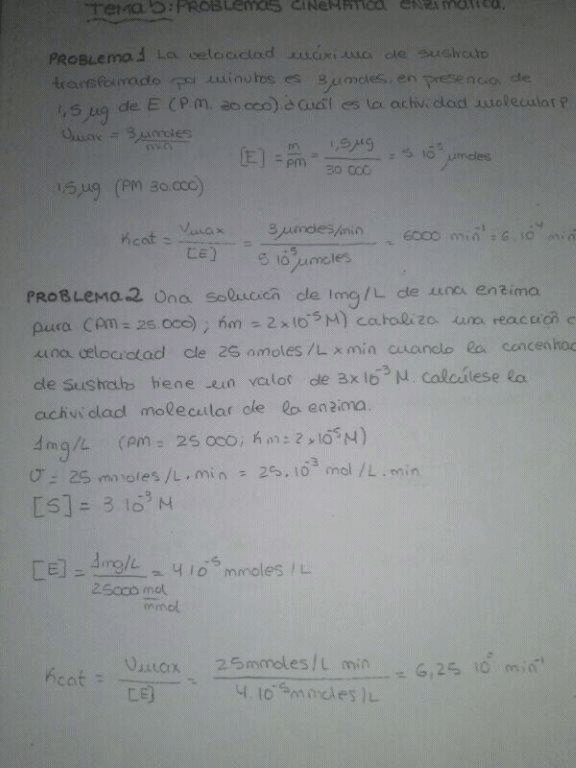 Tema 5: PROBLEMAS CINEMÁTICA ENZIMÁTICA.
PROBLEMA 1 La velocidad máxima de sustrato
transformado por minutos es 3 µmoles, en presencia de
1,5 µg de E (P.M. 30.000) ¿cuál es la actividad molecular?
Vmax = 3 µmoles/min
[E] = m/PM = 1,5 µg/30 000 = 5 10⁻⁵ µmoles
1,5 µg (PM 30.000)
Kcat = Vmax/[E] = 3 µmoles/min / 5 10⁻⁵ µmoles = 6000 min⁻¹ = 6.10⁻⁴ min
PROBLEMA 2 Una solución de 1mg/L de una enzima
pura (PM = 25.000); Km = 2x10⁻⁵ M) cataliza una reacción
una velocidad de 25 nmoles/L x min cuando la concentrac
de sustrato tiene un valor de 3x10⁻³ M. Calcúlese la
actividad molecular de la enzima.
1mg/L (PM = 25 000; Km = 2x10⁻⁵ M)
V = 25 mmoles/L.min = 25.10⁻³ mol/L.min
[S] = 3 10⁻³ M
[E] = 1mg/L / 25000 mol/mmol = 4 10⁻⁵ mmoles/L
Kcat = Vmax/[E] = 25 mmoles/L min / 4.10⁻⁵ mmoles/L = 6,25 10⁵ min⁻¹